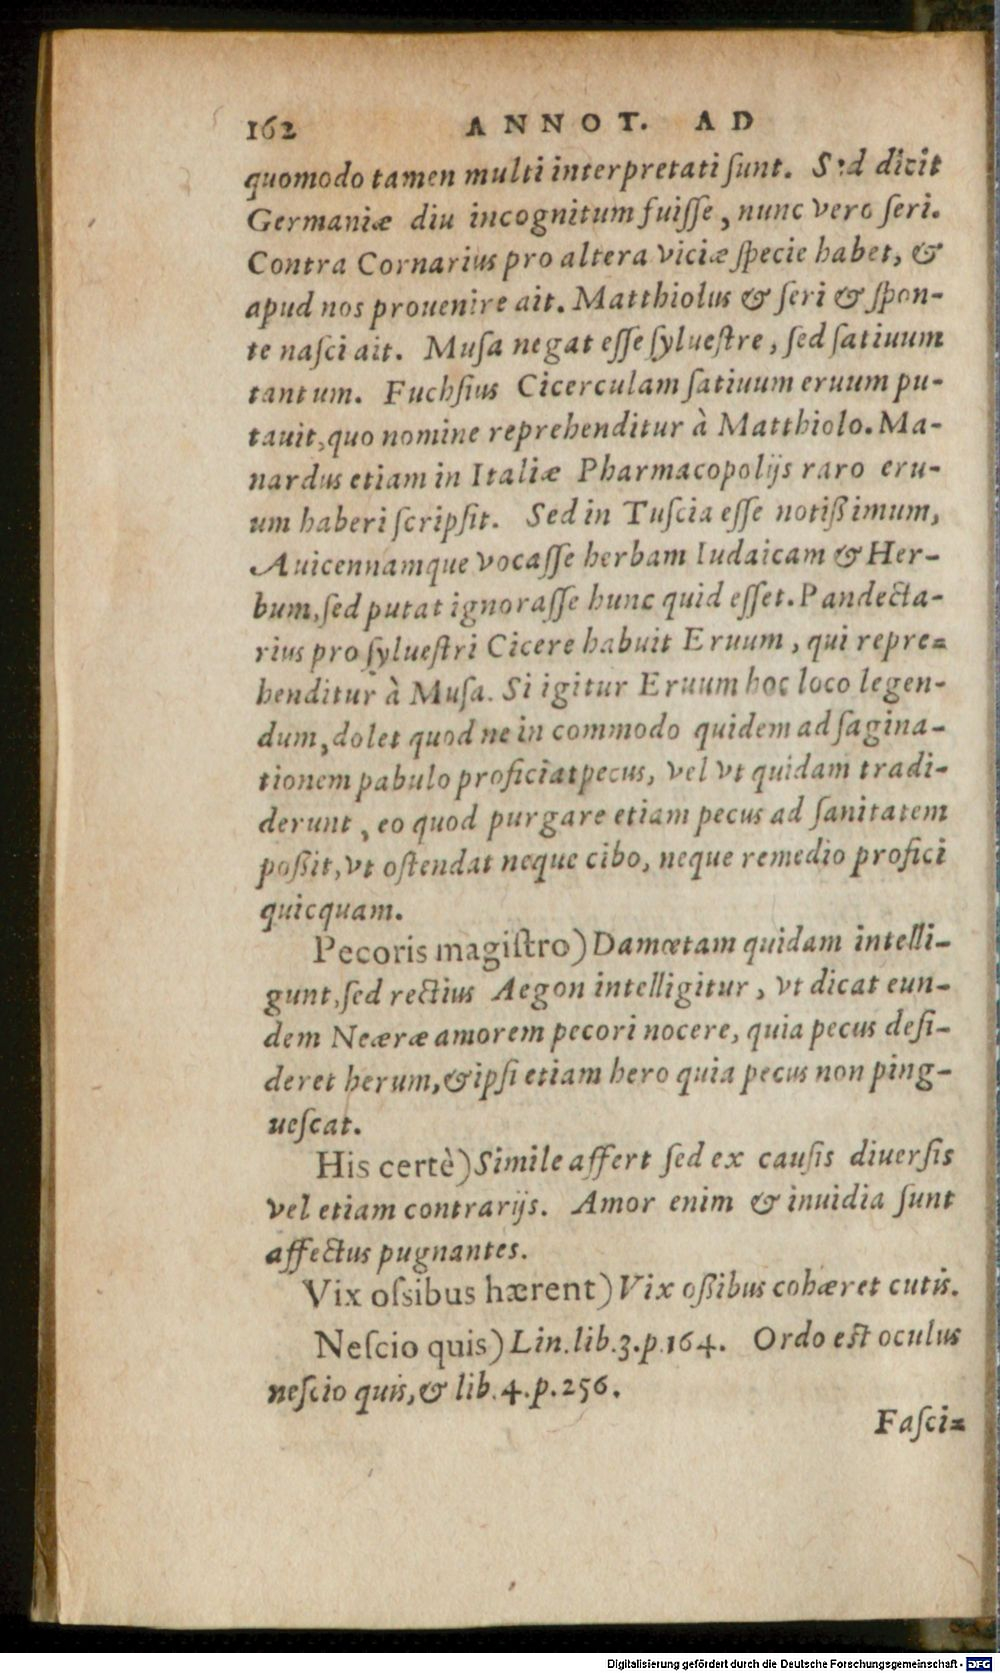 162 ANNOT. AD
quomodo tamen multi interpretati ſunt. Sed dicit
Germaniæ diu incognitum fuiſſe, nunc vero ſeri.
Contra Cornarius pro altera viciæ ſpecie habet, &
apud nos prouenire ait. Matthiolus & ſeri & ſpon-
te naſci ait. Muſa negat eſſe ſylueſtre, ſed ſatiuum
tantum. Fuchſius Cicerculam ſatiuum eruum pu-
tauit, quo nomine reprehenditur à Matthiolo. Ma-
nardus etiam in Italiæ Pharmacopolijs raro eru-
um haberi ſcripſit. Sed in Tuſcia eſſe notißimum,
Auicennamque vocaſſe herbam Iudaicam & Her-
bum, ſed putat ignoraſſe hunc quid eſſet. Pandecta-
rius pro ſylueſtri Cicere habuit Eruum, qui repre=
henditur à Muſa. Si igitur Eruum hoc loco legen-
dum, dolet quod ne in commodo quidem ad ſagina-
tionem pabulo proficiat pecus, vel vt quidam tradi-
derunt, eo quod purgare etiam pecus ad ſanitatem
poßit, vt oſtendat neque cibo, neque remedio profici
quicquam.
Pecoris magiſtro) Damœtam quidam intelli-
gunt, ſed rectius Aegon intelligitur, vt dicat eun-
dem Neæræ amorem pecori nocere, quia pecus deſi-
deret herum, & ipſi etiam hero quia pecus non ping-
ueſcat.
His certè) Simile affert ſed ex cauſis diuerſis
vel etiam contrarijs. Amor enim & inuidia ſunt
affectus pugnantes.
Vix oſsibus hærent) Vix oßibus cohæret cutis.
Neſcio quis) Lin. lib. 3. p. 164. Ordo eſt oculus
neſcio quis, & lib. 4. p. 256.
Faſci=
Digitalisierung gefördert durch die Deutsche Forschungsgemeinschaft - DFG